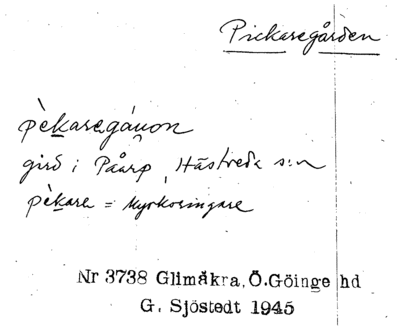 Pickaregården
pèkaregáuon
gård i Påarp, Hästveda s:n
pèkare = kyrkoringare
Nr 3738 Glimåkra, Ö.Göinge hd
G. Sjöstedt 1945